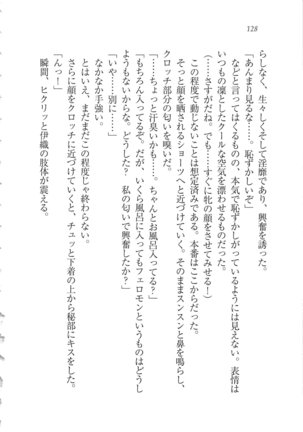 128
らしなく、生々しくそして淫靡であり、興奮を誘った。
「あんまり見るな……。恥ずかしいぞ」
などと言ってはくるものの、本気で恥ずかしがっているようには見えない。表情は
いつもの凜としたクールな空気を漂わせるものだった。
(……さすがだね。でも……すぐに牝の顔をさせてみせる!)
この程度で動じないことは想定済みである。本番はここからだった。
そっと顔を晒されるショーツへと近づけていく。そのままスンスンと鼻を鳴らし、
クロッチ部分の匂いを嗅いだ。
「……ちょっと汗臭いかも……。ちゃんとお風呂入ってる?」
「もちろん入ってるぞ。だが、いくら風呂に入ってもフェロモンというものはどうし
ようもないからな。どうした? 私の匂いで興奮したか?」
「いや……別に……」
なかなか手強い。
とはいえ、まだまだこの程度じゃ終わらない。
さらに顔をクロッチに近づけていくと、チュッと下着の上から秘部にキスをした。
「んっ!」
瞬間、ヒクリッと伊織の肢体が震える。